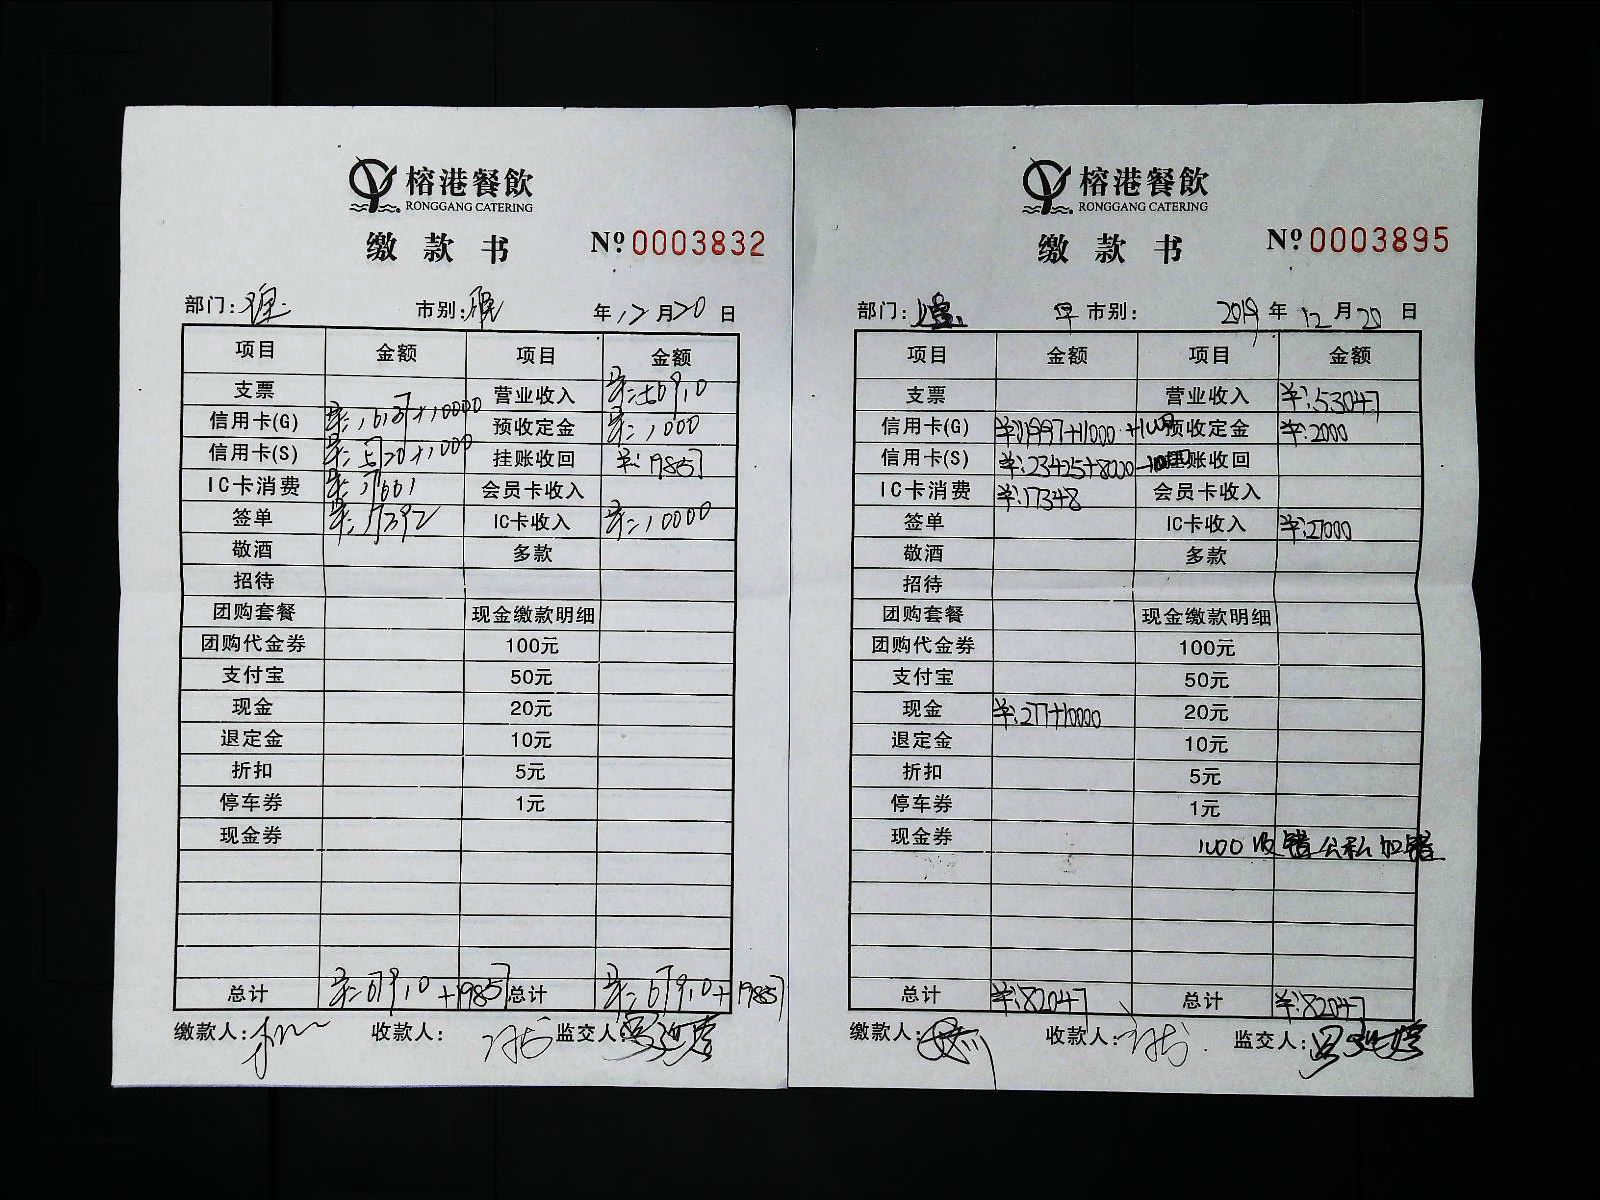 榕港餐飲
RONGGANG CATERING
缴款书 Nº 0003832
部门: 市别: 年 12 月 20 日
项目 金额 项目 金额
支票 营业收入
信用卡(G) 预收定金 ¥:1000
信用卡(S) 挂账收回 ¥:19857
IC卡消费 会员卡收入
签单 ¥:17392 IC卡收入 ¥:10000
敬酒 多款
招待
团购套餐 现金缴款明细
团购代金券 100元
支付宝 50元
现金 20元
退定金 10元
折扣 5元
停车券 1元
现金券
总计 ¥:67910+19857 总计 ¥:67910+19857
缴款人: 收款人: 监交人:
榕港餐飲
RONGGANG CATERING
缴款书 Nº 0003895
部门: 早市别: 2019 年 12 月 20 日
项目 金额 项目 金额
支票 营业收入 ¥:53047
信用卡(G) ¥:11997+11000+1000 预收定金 ¥:2000
信用卡(S) ¥:23425+8000-1000 挂账收回
IC卡消费 ¥:17348 会员卡收入
签单 IC卡收入 ¥:27000
敬酒 多款
招待
团购套餐 现金缴款明细
团购代金券 100元
支付宝 50元
现金 ¥:277+10000 20元
退定金 10元
折扣 5元
停车券 1元
现金券 1000收错公私加错
总计 ¥:82047 总计 ¥:82047
缴款人: 收款人: 监交人: